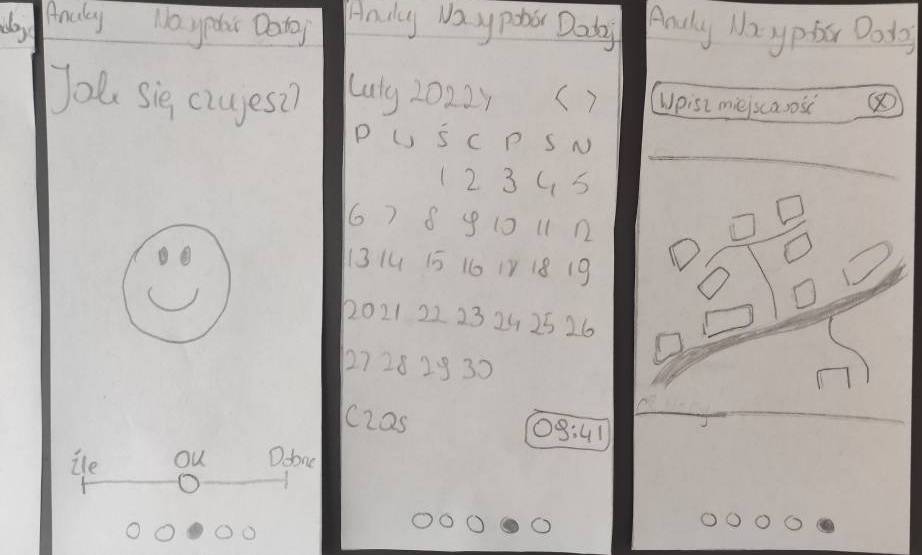 Anuluj Nowy pobór Dodaj
Jak się czujesz?
Źle OK Dobrze
Anuluj Nowy pobór Dodaj
Luty 2022r < >
P W Ś C P S N
1 2 3 4 5
6 7 8 9 10 11 12
13 14 15 16 17 18 19
20 21 22 23 24 25 26
27 28 29 30
Czas 09:41
Anuluj Nowy pobór Dodaj
Wpisz miejscowość X